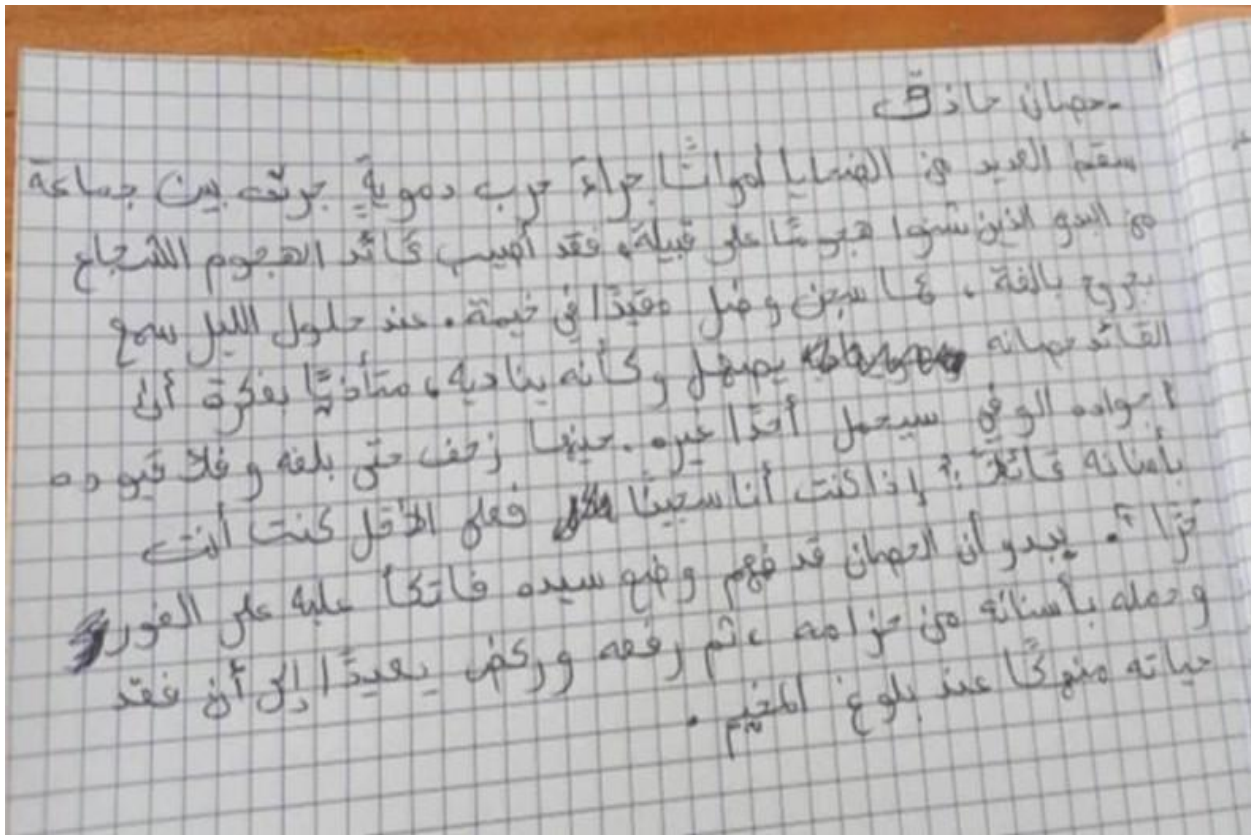 - حصان حاذق
سقط العديد من الضحايا أمواتًا جراءَ حرب دمويةٍ جرت بين جماعة
من البدو الذين شنوا هجومًا على قبيلة، فقد أصيب قائد الهجوم الشجاع
بجروح بالغة، كما سجن وضل مقيدًا في خيمة. عند حلول الليل سمع
القائد حصانه يصهل وكأنه يناديه، متأذيًا بفكرة أن
جواده الوفي سيحمل أحدًا غيره. حينها زحف حتى بلغه وفك قيوده
بأسنانه قائلاً: إذا كنت أنا سجينًا فعلى الأقل كنت أنت
حرًا". يبدو أن الحصان قد فهم وضع سيده فاتكأ عليه على الفور
وحمله بأسنانه من حزامه، ثم رفعه وركض بعيدًا إلى أن فقد
حياته منهكًا عند بلوغ المخيم.